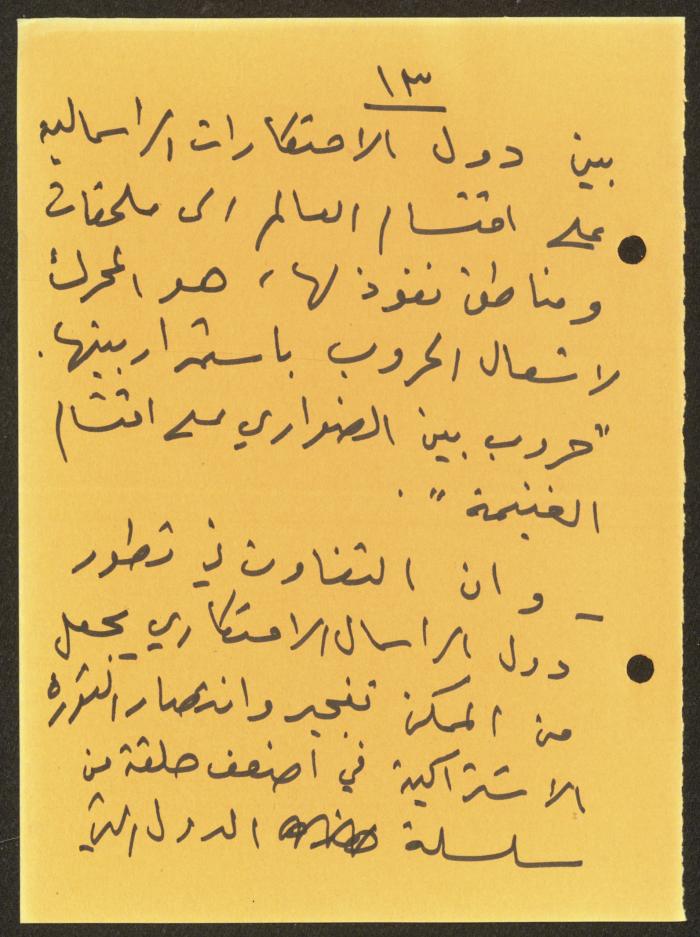 ١٣
بين دول الاحتكارات الراسماليه
على اقتسام العالم الى ملحقات
ومناطق نفوذ لها، هو المحرك
لاشعال الحروب باستمرار بينها.
"حروب بين الضواري على اقتسام
الغنيمة".
- وان التفاوت في تطور
دول الراسمال الاحتكاري يجعل
من الممكن تفجير وانتصار الثورة
الاشتراكية في اضعف حلقة من
سلسلة الدول